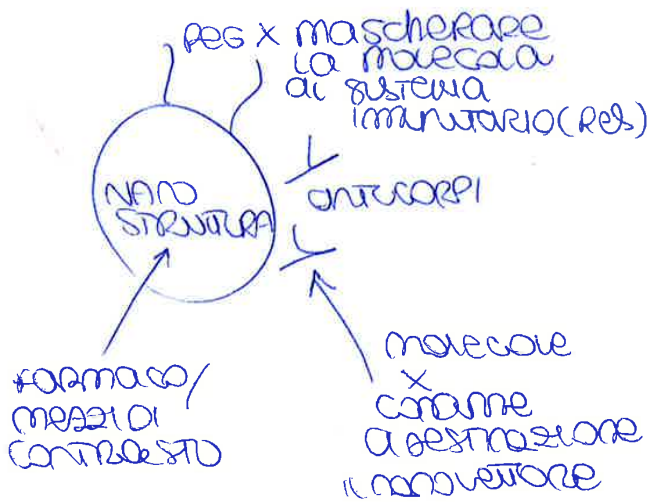 PEG X MASCHERARE
LA MOLECOLA
AL SISTEMA
IMMUNITARIO (RES)
NANO
STRUTTURA
ANTICORPI
FARMACO/
MEZZI DI
CONTRASTO
MOLECOLE
X
CONDURRE
A DESTINAZIONE
IL NANOVETTORE